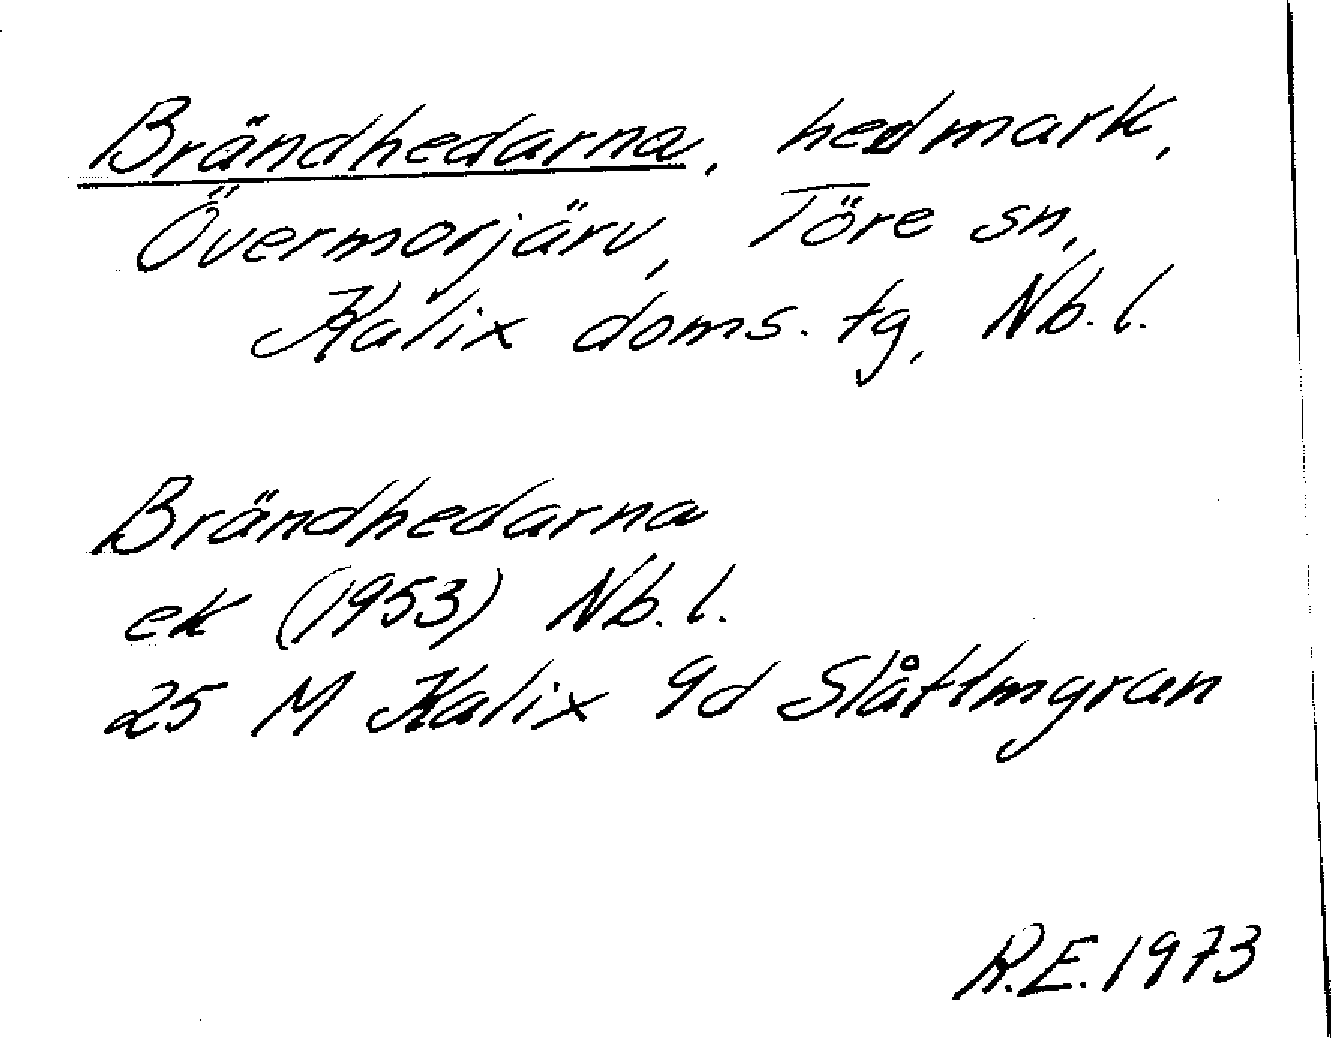 Brändhedarna, hedmark,
Övermorjärv, Töre sn,
Kalix doms. tg, Nb. l.
Brändhedarna
ek (1953) Nb. l.
25 M Kalix 9d Slåttmgran
R.E. 1973